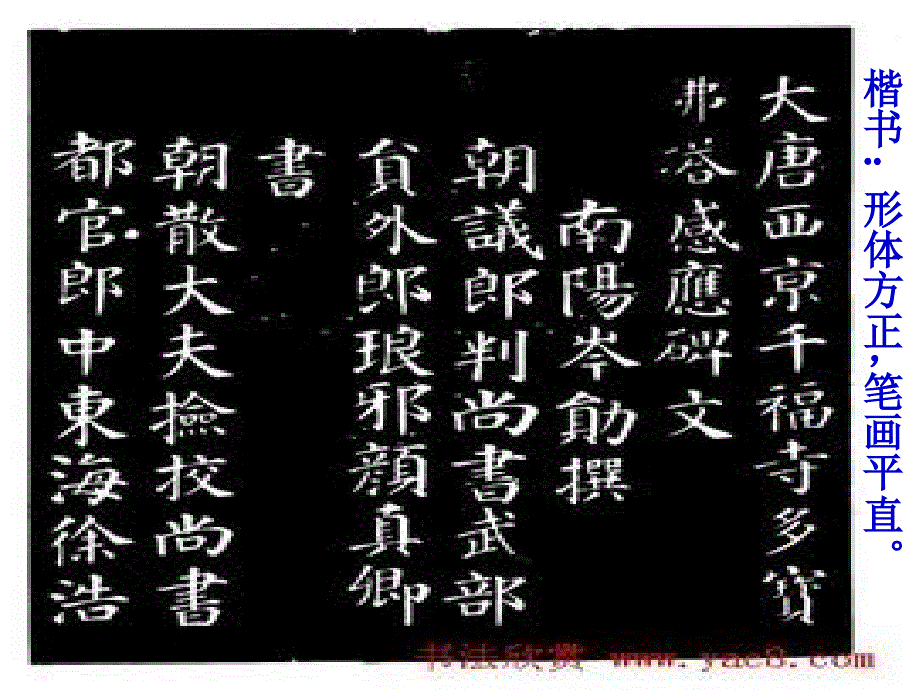 楷书：形体方正，笔画平直。
大唐西京千福寺多寶
弗塔感應碑文
南陽岑勛撰
朝議郎判尚書武部
貟外郎琅邪顔真卿
書
朝散大夫撿挍尚書
都官郎中東海徐浩
书法欣赏 www.yac8.com